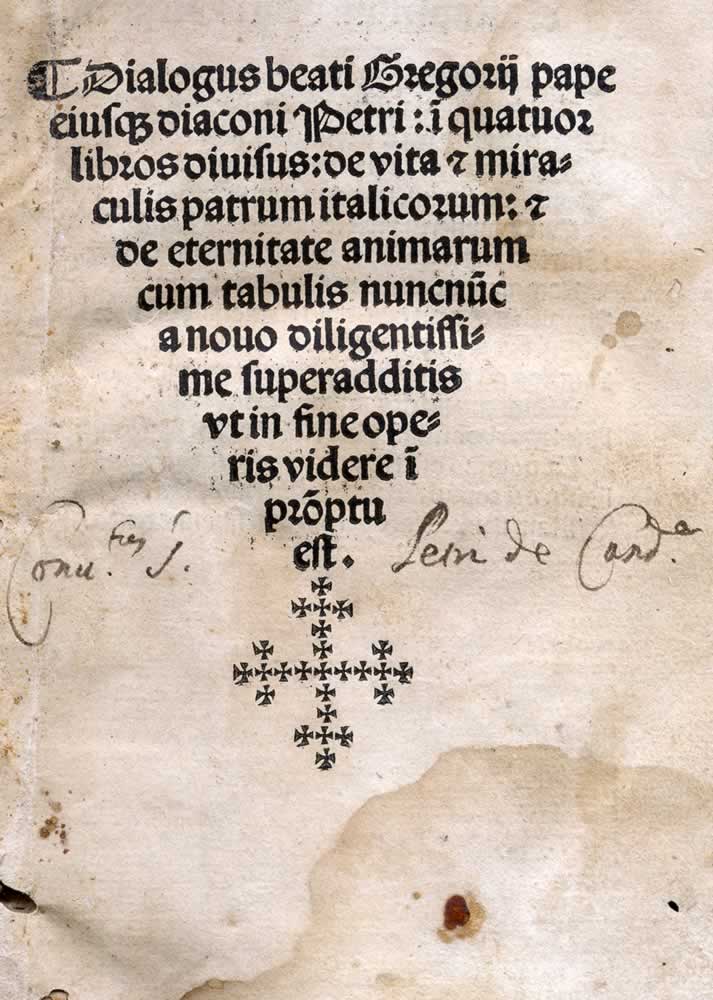 Dialogus beati Gregorij pape
eiusqꝫ diaconi Petri: ī quatuor
libros diuisus: de vita ⁊ mira⸗
culis patrum italicorum: ⁊
de eternitate animarum
cum tabulis nuncnūc
a nouo diligentissi⸗
me superadditis
vt in fine ope⸗
ris videre ī
prōptu
est.
Conu. S. Petri de Cand.ᵃ